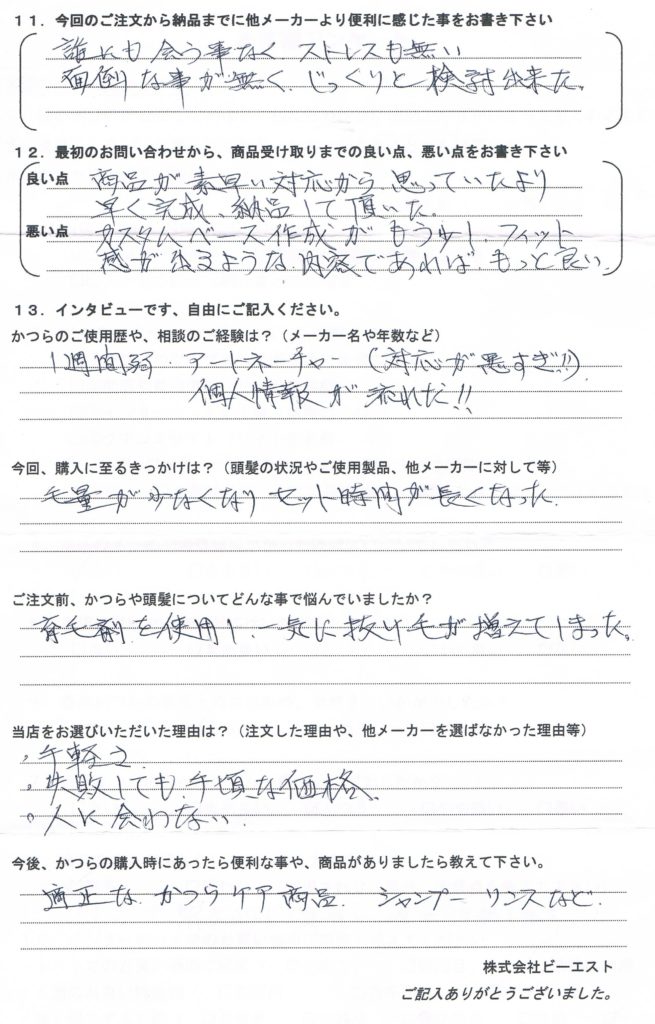 １１．今回のご注文から納品までに他メーカーより便利に感じた事をお書き下さい
誰にも会う事なく、ストレスも無い
面倒な事が無く、じっくりと検討出来た。
１２．最初のお問い合わせから、商品受け取りまでの良い点、悪い点をお書き下さい
良い点 商品が素早い対応から、思っていたより
早く完成、納品して頂いた。
悪い点 カスタムベース作成がもう少し、フィット
感が出るような、内容であれば、もっと良い。
１３．インタビューです、自由にご記入ください。
かつらのご使用歴や、相談のご経験は？（メーカー名や年数など）
１週間弱・アートネーチャー（対応が悪すぎ!!）
個人情報が流れた!!
今回、購入に至るきっかけは？（頭髪の状況やご使用製品、他メーカーに対して等）
毛量が少なくなりセット時間が長くなった。
ご注文前、かつらや頭髪についてどんな事で悩んでいましたか？
育毛剤を使用し、一気に抜け毛が増えてしまった。
当店をお選びいただいた理由は？（注文した理由や、他メーカーを選ばなかった理由等）
・手軽さ
・失敗しても、手頃な価格、
・人に会わない
今後、かつらの購入時にあったら便利な事や、商品がありましたら教えて下さい。
適正な、かつらケア商品、シャンプー リンスなど、
株式会社ビーエスト
ご記入ありがとうございました。